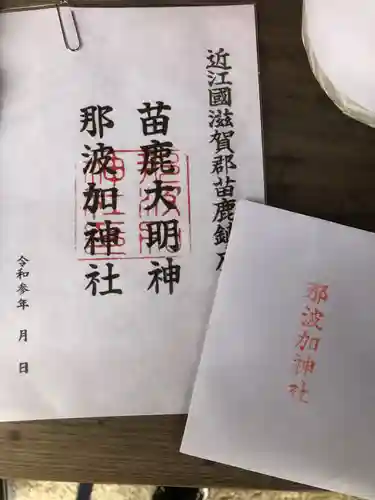 近江國滋賀郡苗鹿鎮
苗鹿大明神
那波加神社
令和参年　月　日
那波加神社